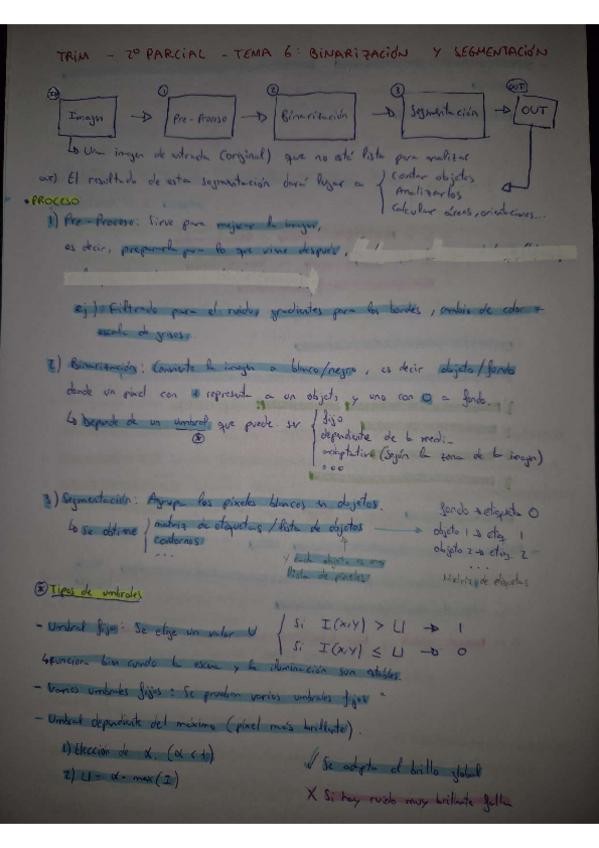 TRIM - 2º PARCIAL - TEMA 6: BINARIZACIÓN Y SEGMENTACIÓN
IN 1 2 3 OUT
Imagen → Pre-Proceso → Binarización → Segmentación → OUT
↳ Una imagen de entrada (original) que no está lista para analizar
El resultado de esta segmentación dará lugar a { contar objetos
Analizarlos
Calcular áreas, orientaciones...
• PROCESO
1) Pre-Proceso: Sirve para mejorar la imagen,
es decir, prepararla para lo que viene después,
ej) Filtrado para el ruido, gradientes para los bordes, cambio de color →
escala de grises.
2) Binarización: Convierte la imagen a blanco/negro, es decir objeto/fondo
donde un pixel con 1 representa a un objeto y uno con 0 a fondo.
↳ Depende de un umbral que puede ser { fijo
dependiente de la medi
adaptativo (según la zona de la imagen)
...
3) Segmentación: Agrupa los píxeles blancos en objetos.
↳ Se obtiene { matriz de etiquetas / lista de objetos →
contornos
...
fondo → etiqueta 0
objeto 1 → etiq. 1
objeto 2 → etiq. 2
...
Matriz de etiquetas
Y cada objeto es una
lista de píxeles
* Tipos de umbrales
- Umbral fijo: Se elige un valor U { Si I(x,y) > U → 1
Si I(x,y) ≤ U → 0
↳ funciona bien cuando la escena y la iluminación son estables.
- Varios umbrales fijos: Se prueban varios umbrales fijos
- Umbral dependiente del máximo (pixel más brillante).
1) Elección de α. (α < 1)
2) U = α · max(I)
✓ Se adapta al brillo global
X Si hay ruido muy brillante falla